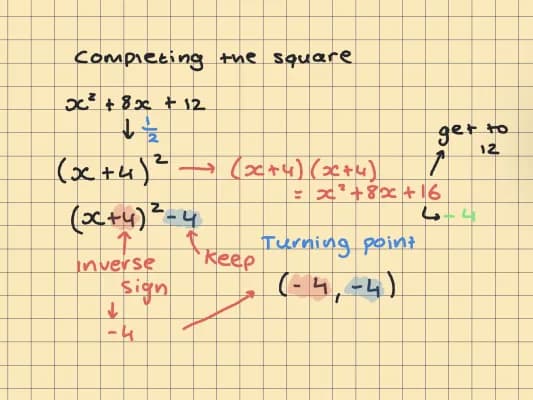 Completing the square
x² + 8x + 12
↓ 1/2
get to
12
(x+4)² → (x+4)(x+4)
= x² + 8x + 16
↳ -4
(x+4)² - 4
Turning point
inverse
sign
keep
(-4, -4)
↓
-4